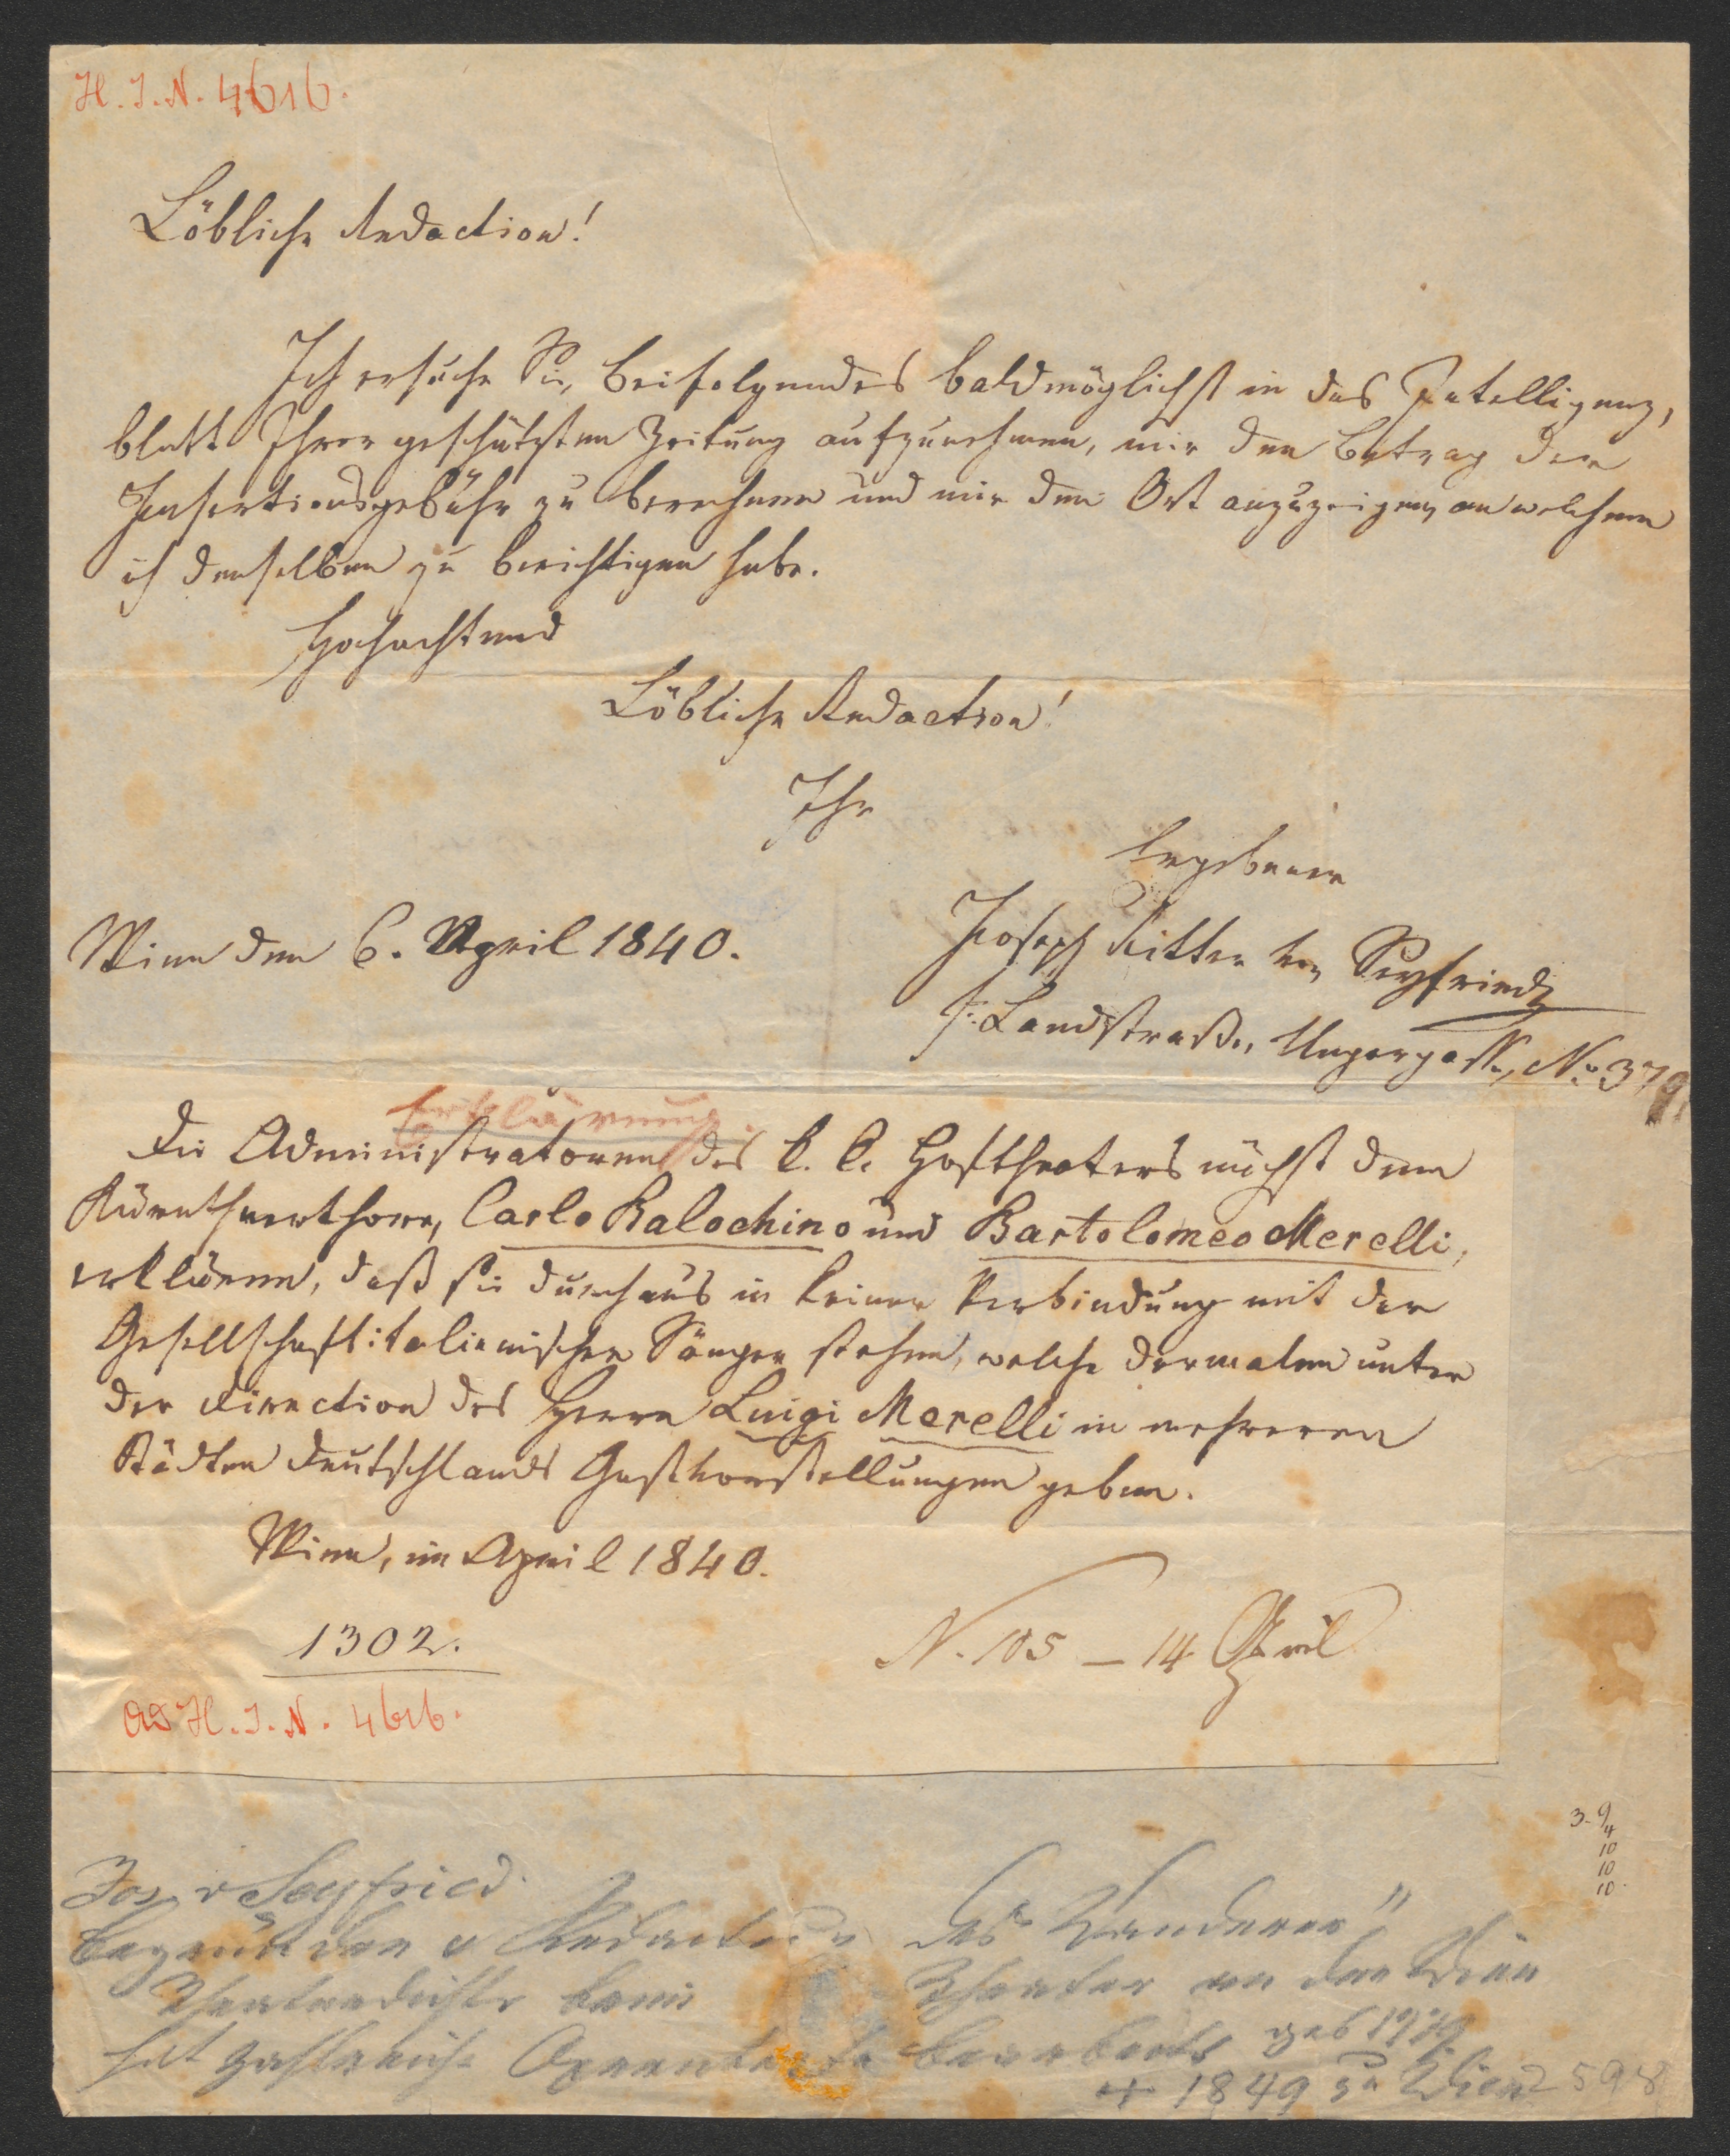 H. I. N. 4616.
Löbliche Redaction!
Ich ersuche Sie, beifolgendes baldmöglichst in das Intelligenz,
blatt Ihrer geschätzten Zeitung aufzunehmen, mir den Betrag der
Insertionsgebühr zu berechnen und mir den Ort anzuzeigen, an welchem
ich denselben zu berichtigen habe.
Hochachtend
Löbliche Redaction!
Ihr
Ergebener
Wien den 6. April 1840.
Joseph Ritter von Seyfried
Landstraße, Ungergasse, No. 379
Erklärung.
Die Administratoren des k. k. Hoftheaters nächst dem
Kärnthnerthore, Carlo Balochino und Bartolomeo Merelli,
erklären, daß sie durchaus in keiner Verbindung mit der
Gesellschaft italienischer Sänger stehen, welche dermalen unter
der Direction des Herrn Luigi Merelli in mehreren
Städten Deutschlands Gastvorstellungen geben.
Wien, im April 1840.
1302.
N. 105 – 14 April
ad H. I. N. 4616.
3. 9/4
10
10
10.
Jos. v Seyfried.
Begründer u Redacteur des "Wanderer"
Theaterdichter beim Theater an der Wien
hat zahlreiche Operntexte bearbeitet geb
+ 1849 in Wien